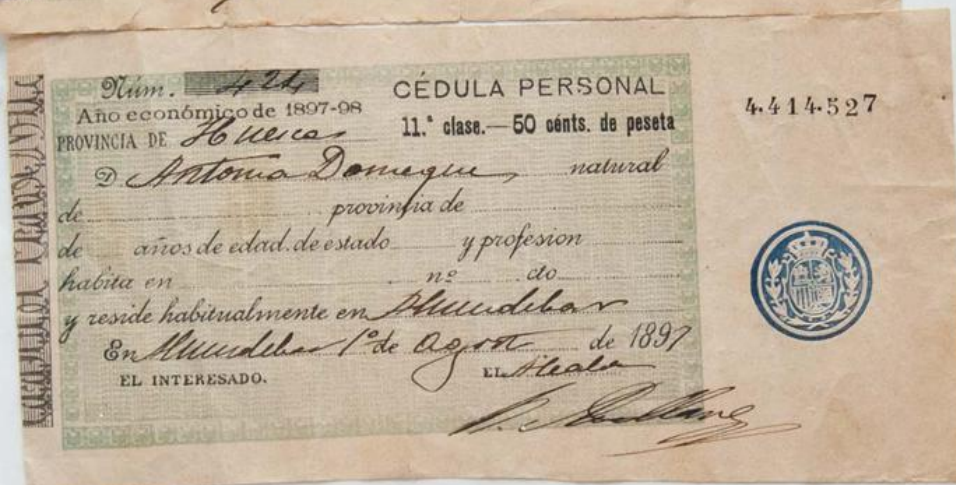 Núm. 424
CÉDULA PERSONAL
Año económico de 1897-98
11.ª clase.—50 cénts. de peseta
4.414.527
PROVINCIA DE Huesca
D Antonia Domeque, natural
de provincia de
de años de edad. de estado y profesion
habita en nº cto
y reside habitualmente en Almudebar
En Almudebar 1º de Agosto de 1897
EL INTERESADO.
EL Alcalde